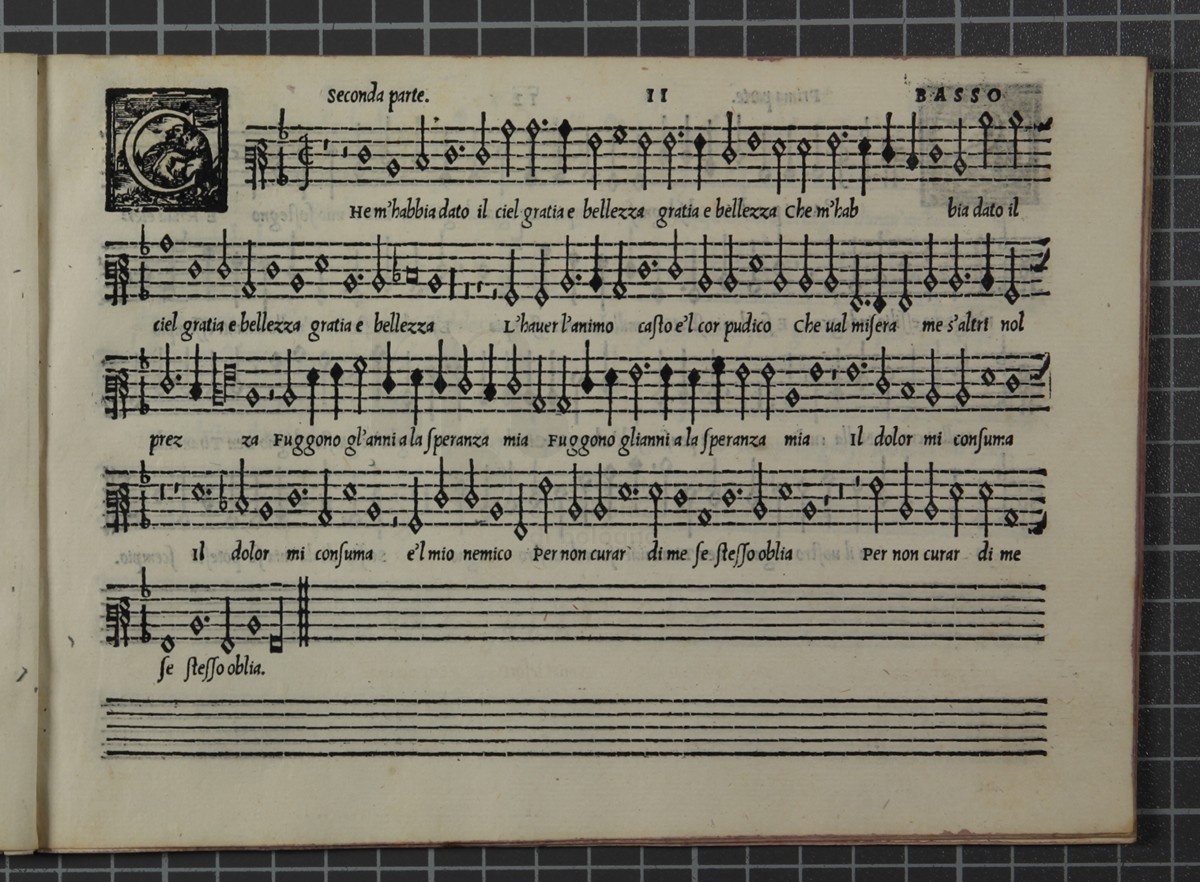 Seconda parte. 11 BASSO
CHe m'habbia dato il ciel gratia e bellezza gratia e bellezza Che m'hab bia dato il
ciel gratia e bellezza gratia e bellezza L'hauer l'animo casto e'l cor pudico Che ual misera me s'altri nol
prez za Fuggono gl'anni a la speranza mia Fuggono glianni a la speranza mia Il dolor mi consuma
Il dolor mi consuma e'l mio nemico Per non curar di me se stesso oblia Per non curar di me
se stesso oblia.